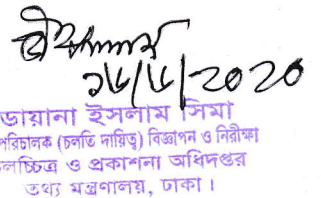 ১৬/৬/2020
ডায়ানা ইসলাম সিমা
পরিচালক (চলতি দায়িত্ব) বিজ্ঞাপন ও নিরীক্ষা
লচ্চিত্র ও প্রকাশনা অধিদপ্তর
তথ্য মন্ত্রণালয়, ঢাকা।